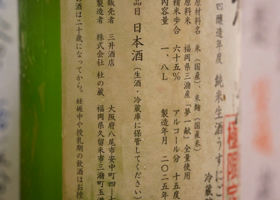 四醸造年度 純米生酒うすにご
極限定
冷蔵
原材料名 米(国産)、米麹(国産米)
原料米 福岡県三潴産「夢一献」全量使用
精米歩合 六十五% アルコール分 十五度
内容量 一、八L 製造年月 二〇二五年
品目 日本酒 (生酒・冷蔵庫に保管してください)
販売者 三井酒店 大阪府八尾市安中町四
製造者 株式会社 杜の蔵 福岡県久留米市三潴町玉満
酒は二十歳になってから。妊娠中や授乳期の飲酒はお控